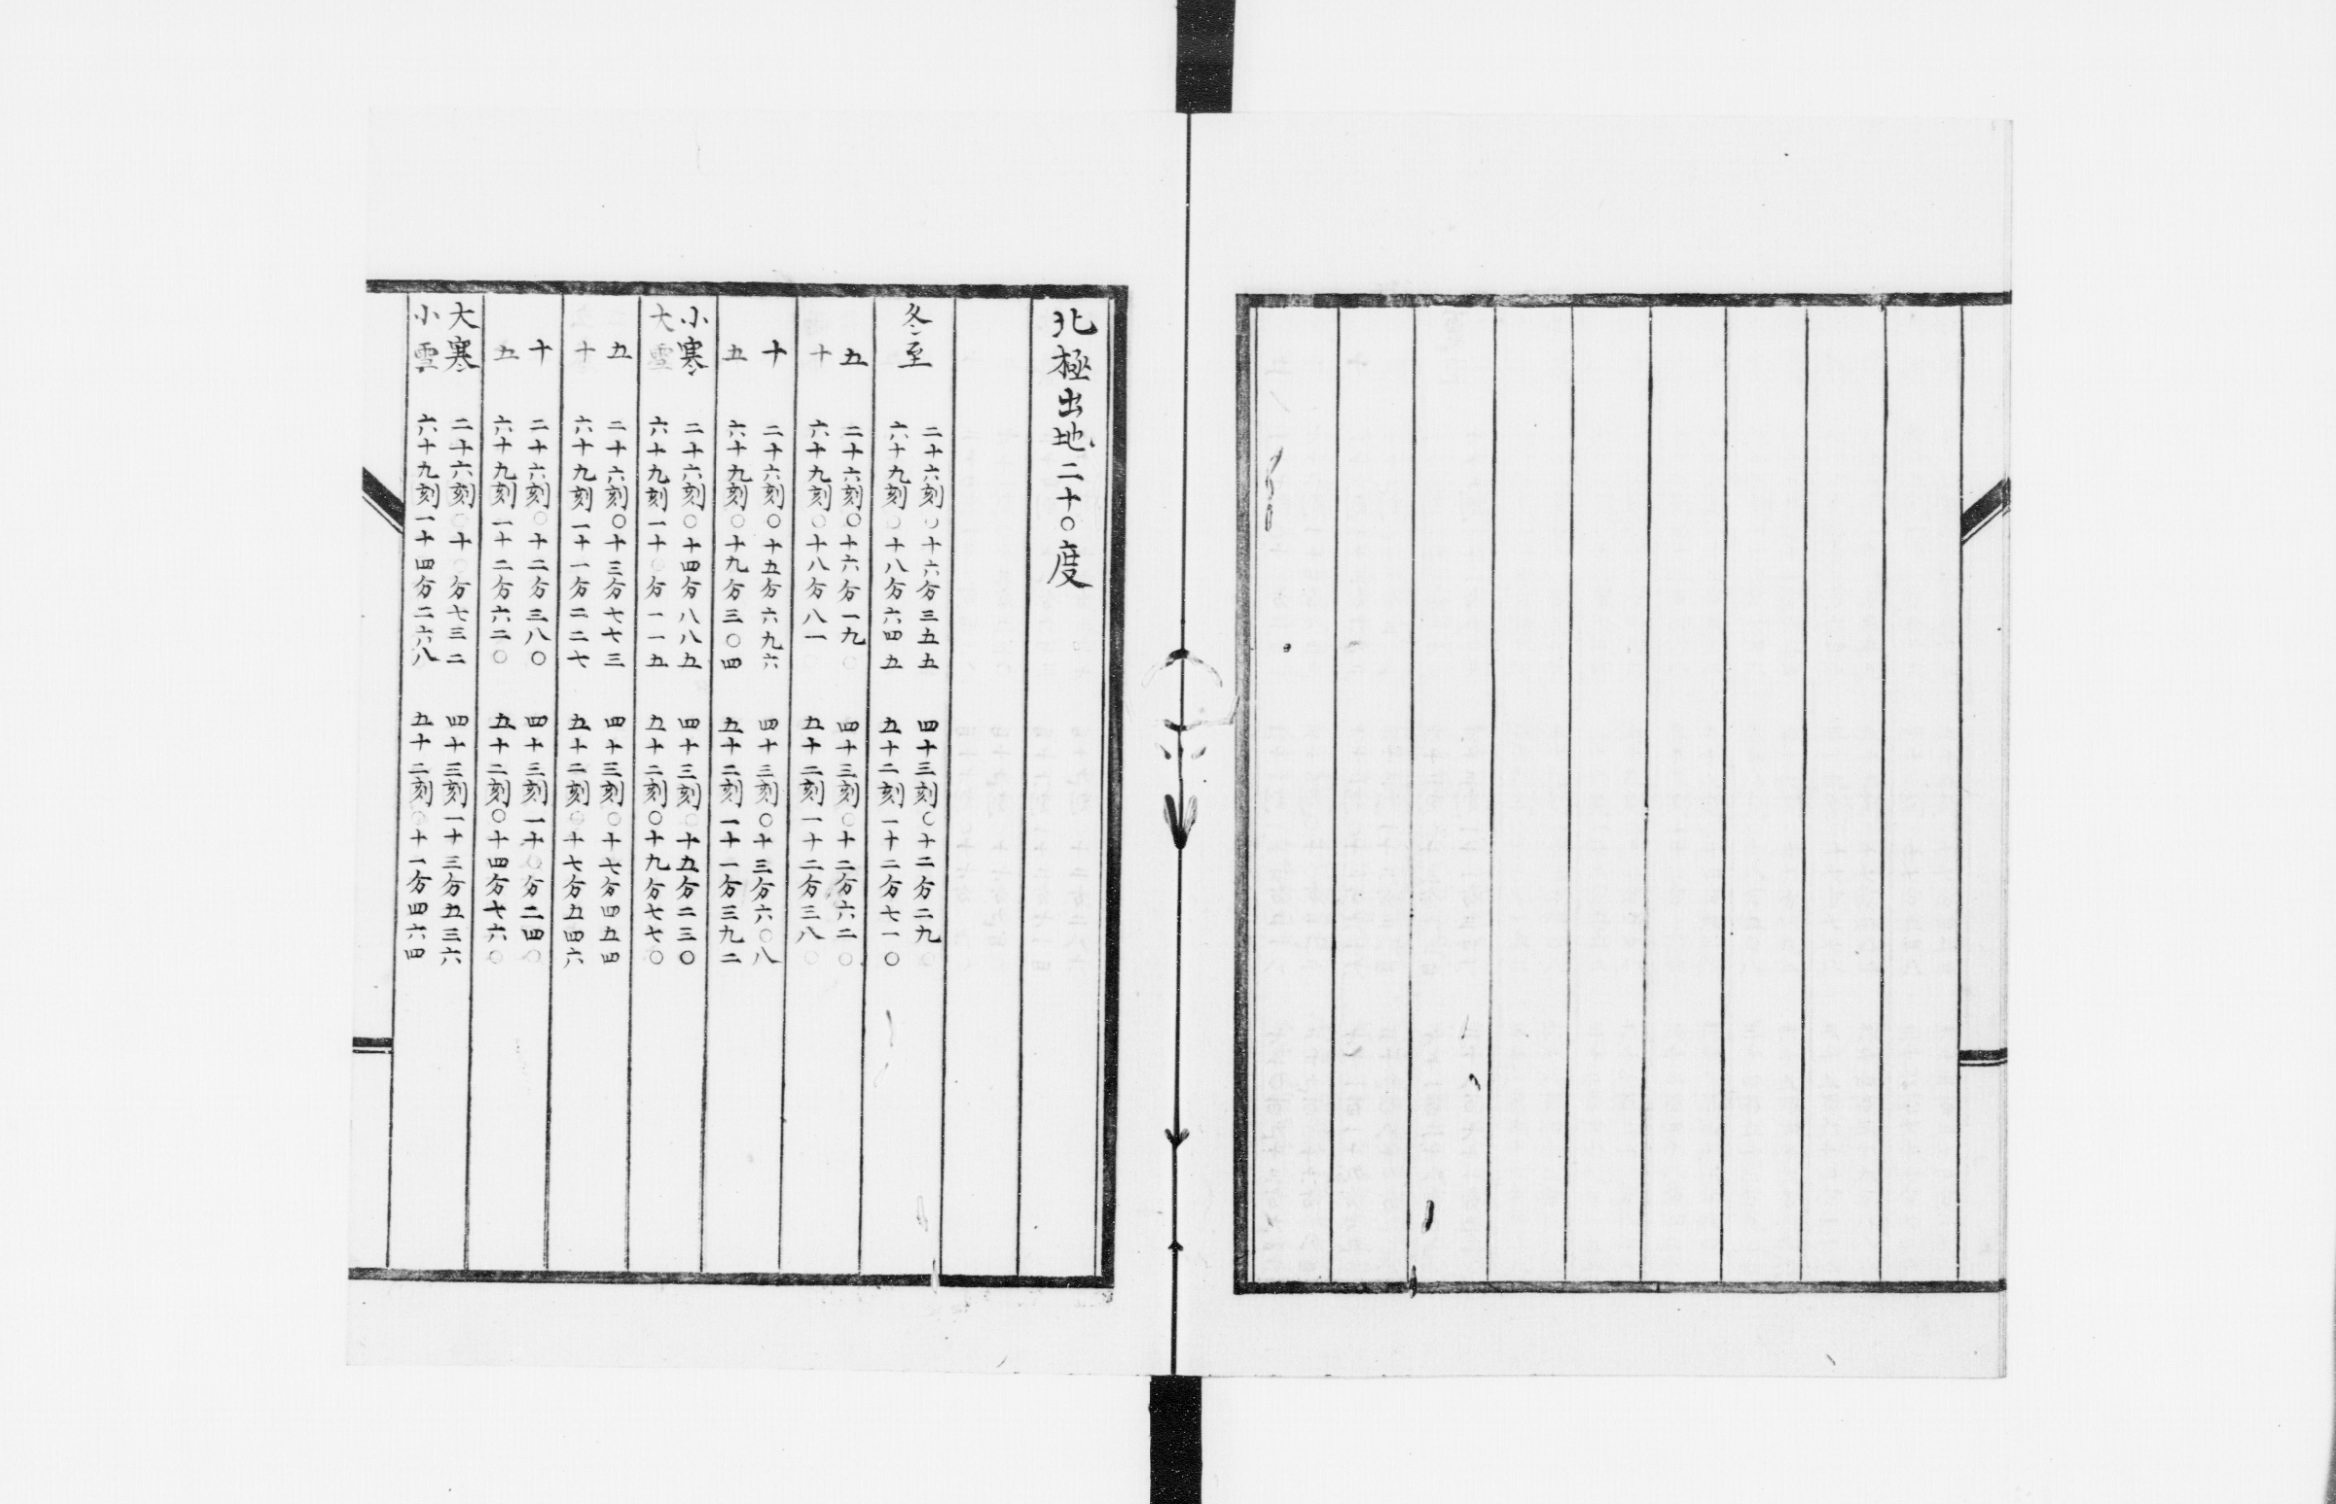 北極出地二十〇度
冬至 二十六刻〇十六分三五五 四十三刻〇十二分二九〇
六十九刻〇十八分六四五 五十二刻一十二分七一〇
五 二十六刻〇十六分一九〇 四十三刻〇十二分六二〇
十 六十九刻〇十八分八一〇 五十二刻一十二分三八〇
十 二十六刻〇十五分六九六 四十三刻〇十三分六〇八
五 六十九刻〇十九分三〇四 五十二刻一十一分三九二
小寒 二十六刻〇十四分八八五 四十三刻〇十五分二三〇
大雪 六十九刻一十〇分一一五 五十二刻〇十九分七七〇
五 二十六刻〇十三分七七三 四十三刻〇十七分四五四
十 六十九刻一十一分二二七 五十二刻〇十七分五四六
十 二十六刻〇十二分三八〇 四十三刻一十〇分二四〇
五 六十九刻一十二分六二〇 五十二刻〇十四分七六〇
大寒 二十六刻〇十〇分七三二 四十三刻一十三分五三六
小雪 六十九刻一十四分二六八 五十二刻〇十一分四六四